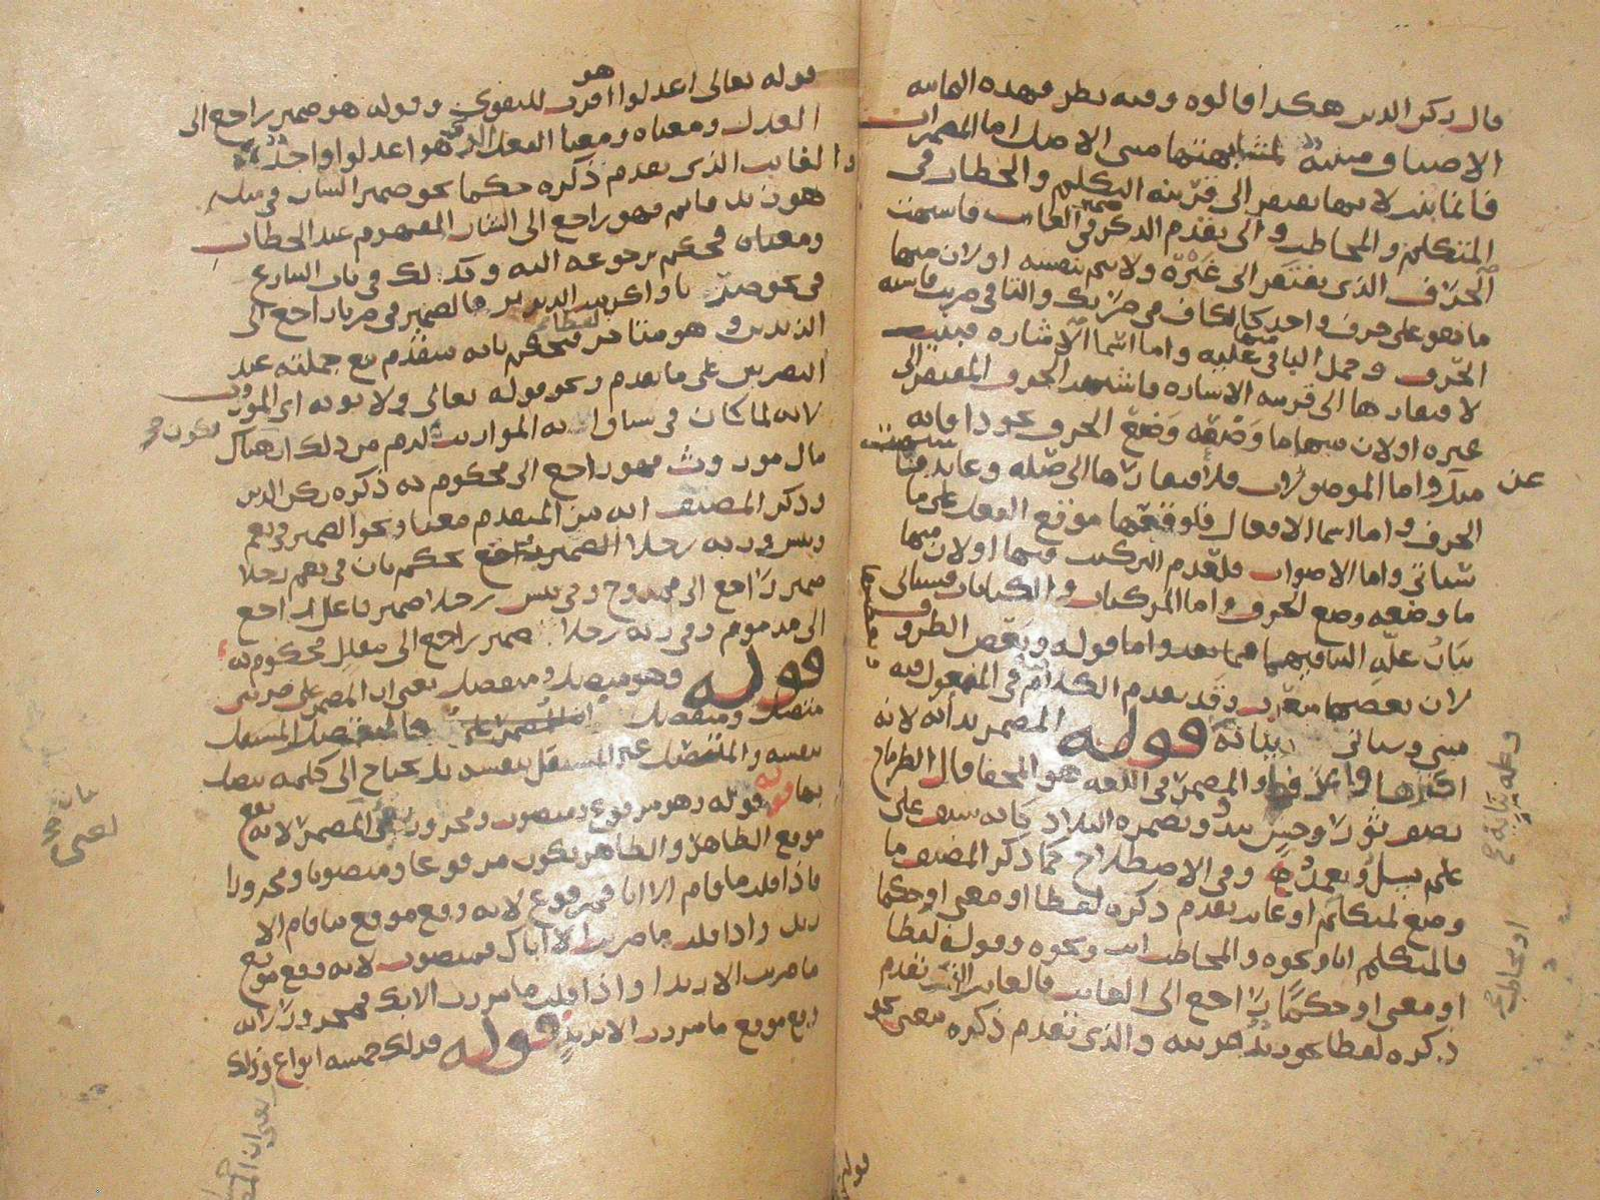 قال ركن الدين هكذا قالوه وفيه نظر فهذه الثمانية
الاصناف مبنية لمشابهتها مبنى الاصل اما المضمرات
فانما بنيت لانها تفتقر الى قرينة التكلم والخطاب في
المتكلم والمخاطب والى تقدم الذكر في الغائب فاشبهت
الحرف الذي يفتقر الى غيره ولا يتم بنفسه او لان منها
ما هو على حرف واحد كالكاف في ضربك والتا في ضربت فاشبه
الحرف وحمل الباقي عليه واما اسما الاشارة فبنيت
لافتقارها الى قرينة الاشارة فاشبهت الحرف المفتقر الى
غيره او لان منها ما وضعه وضع الحرف نحو ذا فانه
مبني واما الموصولات فلافتقارها الى صلة وعايد فاشبهت
الحرف واما اسما الافعال فلوقوعها موقع الفعل على ما
سياتي واما الاصوات فلعدم التركيب فيها او لان منها
ما وضعه وضع الحرف واما المركبات والكنايات فسياتي
بيان علة البنا فيهما فيما بعد واما قوله وبعض الظروف
لان بعضها معرب وقد تقدم الكلام في المفعول فيه
مبني وسياتي بيانه قوله المضمر بدا به لانه
اكثرها والمضمر في اللغة هو المخفا قال الطرماح
يصف ثورا وحشي يبدو وتضمره البلاد كانه سيف على
علم يسل ويغمد وفي الاصطلاح كما ذكر المصنف ما
وضع لمتكلم او غايب تقدم ذكره لفظا او معنى او حكما
فالمتكلم انا ونحوه والمخاطب انت ونحوه وقوله لفظا
او معنى او حكما راجع الى الغايب فالغايب الذي تقدم
ذكره لفظا نحو زيد ضربته والذي تقدم ذكره معنى نحو
عن
او مخاطب
قوله تعالى اعدلوا هو اقرب للتقوى وقوله هو ضمير راجع الى
العدل ومعناه ومعنا الفعل الذي هو اعدلوا واحد
والغايب الذي تقدم ذكره حكما نحو ضمير الشان في مثل
هو زيد قايم فهو راجع الى الشان المفهوم عند الخطاب
ومعناه فحكم برجوعه اليه وكذلك في باب التنازع
في نحو ضربنا واكرمت الزيدين فالضمير في ضربا راجع الى
الزيدين وهو متاخر لفظا فحكم بانه متقدم مع جملته عند
البصريين على ما تقدم ونحو قوله تعالى ولابويه اي الموروث
لانه لما كان في سياق اية المواريث لزم من ذلك ان هناك
مال موروث فهو راجع الى محكوم به ذكره ركن الدين
وذكر المصنف انه من المتقدم معنا ونحو الضمير في نعم
وبيس وربه رجلا بحكم بان في نعم رجلا
ضمير راجع الى ممدوح وفي بيس رجلا ضمير فاعل راجع
الى مذموم وفي ربه رجلا ضمير راجع الى مقلل محكوم به
قوله وهو متصل ومنفصل يعني ان المضمر على ضربين
متصل ومنفصل فالمنفصل المستقل
بنفسه والمتصل غير المستقل بنفسه بل يحتاج الى كلمه يتصل
بها قوله وهو مرفوع ومنصوب ومجرور يعني المضمر لانه يقع
موقع الظاهر والظاهر يكون مرفوعا ومنصوبا ومجرورا
فاذا قلت ما قام الا انا فمرفوع لانه وقع موقع ما قام الا
زيد واذا قلت ما ضربت الا اياك فمنصوب لانه وقع موقع
ما ضربت الا زيدا واذا قلت ما مررت الا بك فمجرور لانه
وقع موقع ما مررت الا بزيد قوله فذلك خمسة انواع وذلك